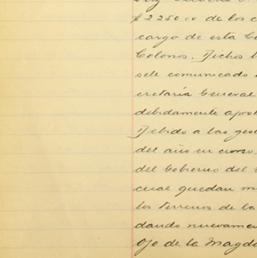 $2250.00 de los c
cargo de esta Co
Colonos. Dichos b
sele comunicado
cretaría General
debidamente apost
Debido a las gest
del año en curso
del Gobierno del
cual quedan m
los terrenos de la
dando nuevamen
Ojo de la Magda